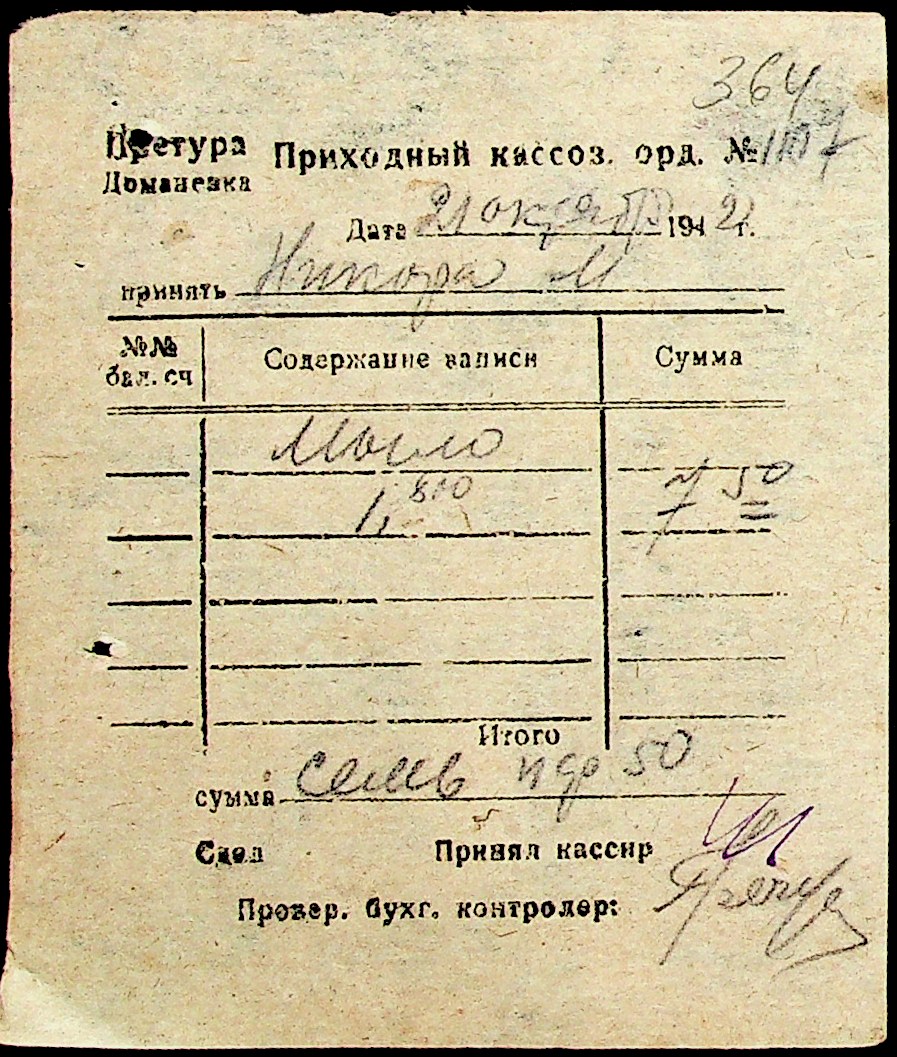 364
Претура Приходный кассов. орд. № 1107
Доманевка
Дата 21 октября 1942 г.
принять Никора М
№№ бал. сч Содержание записи Сумма
Масло
1,810 7 50
Итого
сумма семь ндр 50
Сдал Принял кассир
Провер. бухг. контролер: